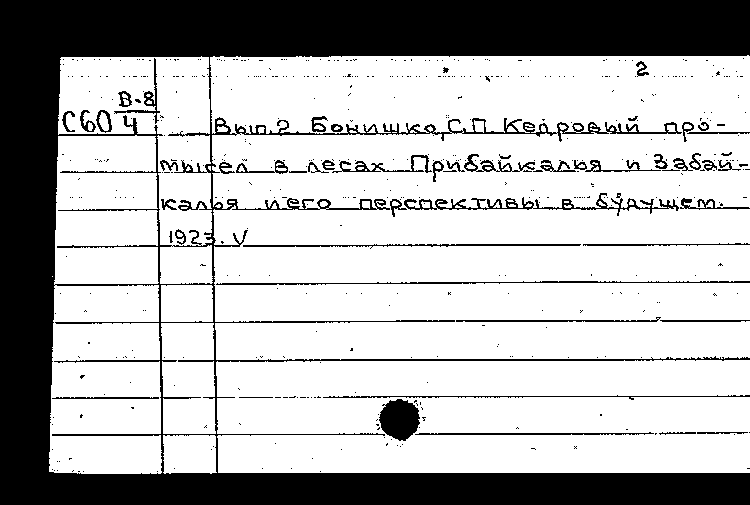 2
В-8
С60 4
Вып.2. Бонишко, С.П. Кедровый про-
мысел в лесах Прибайкалья и Забай-
калья и его перспективы в будущем.
1923. V